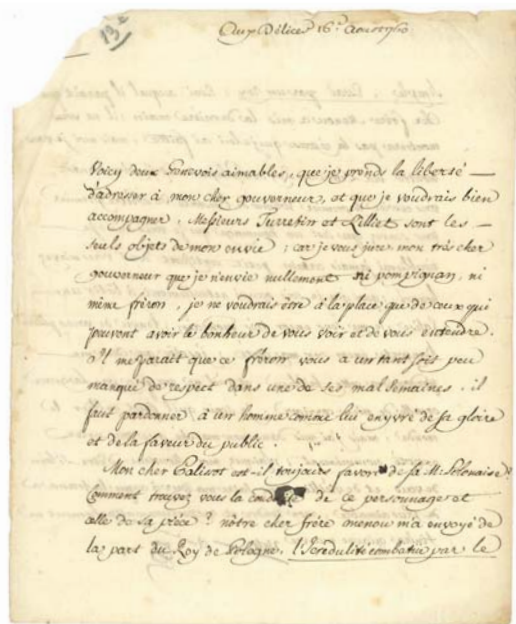 19e
Aux Délices 16e Aoust 1760
Voicy deux Genevois aimables, que je prends la liberté
d'adresser à mon cher gouverneur, et que je voudrais bien
accompagner. Messieurs Turretin et Lilliet sont les
seuls objets de mon envie ; car je vous jure mon très cher
gouverneur que je n'envie nullement ni pompignan, ni
même fréron, je ne voudrais être à la place que de ceux qui
peuvent avoir le bonheur de vous voir et de vous entendre.
Il me parait que ce fréron vous a un tant soit peu
manqué de respect dans une de ses mal semaines. il
faut pardonner à un homme comme lui enyvré de sa gloire
et de la faveur du public.
Mon cher Palissot est-il toujours favori de sa M. Polonaise ?
Comment trouvez vous la de ce personnage et
celle de sa pièce ? nôtre cher frère menou m'a envoyé de
la part du Roy de Pologne, l'Incrédulité combatue par le